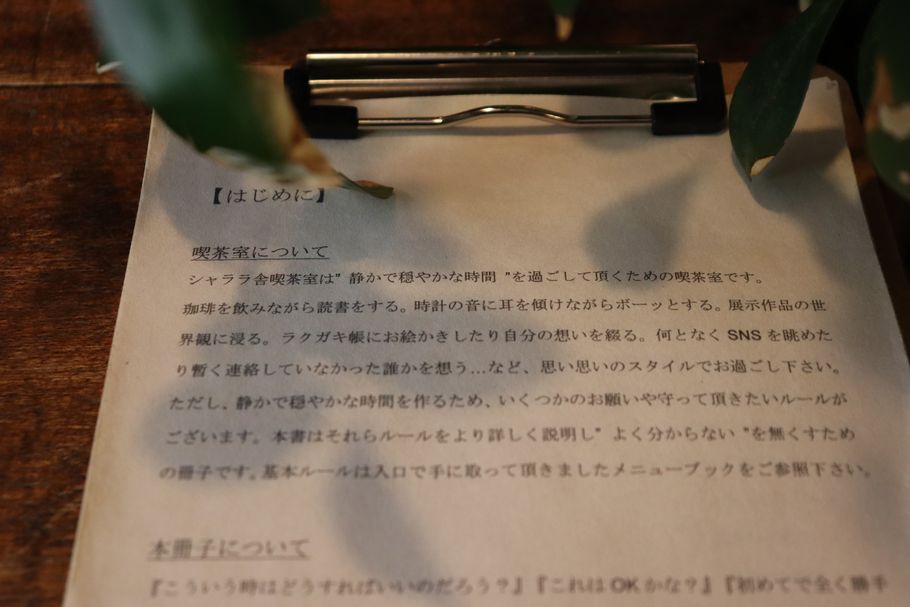 【はじめに】
喫茶室について
シャララ舎喫茶室は" 静かで穏やかな時間 "を過ごして頂くための喫茶室です。
珈琲を飲みながら読書をする。時計の音に耳を傾けながらボーッとする。展示作品の世
界観に浸る。ラクガキ帳にお絵かきしたり自分の想いを綴る。何となく SNS を眺めた
り暫く連絡していなかった誰かを想う…など、思い思いのスタイルでお過ごし下さい。
ただし、静かで穏やかな時間を作るため、いくつかのお願いや守って頂きたいルールが
ございます。本書はそれらルールをより詳しく説明し" よく分からない "を無くすため
の冊子です。基本ルールは入口で手に取って頂きましたメニューブックをご参照下さい。
本冊子について
『こういう時はどうすればいいのだろう？』『これは OK かな？』『初めてで全く勝手